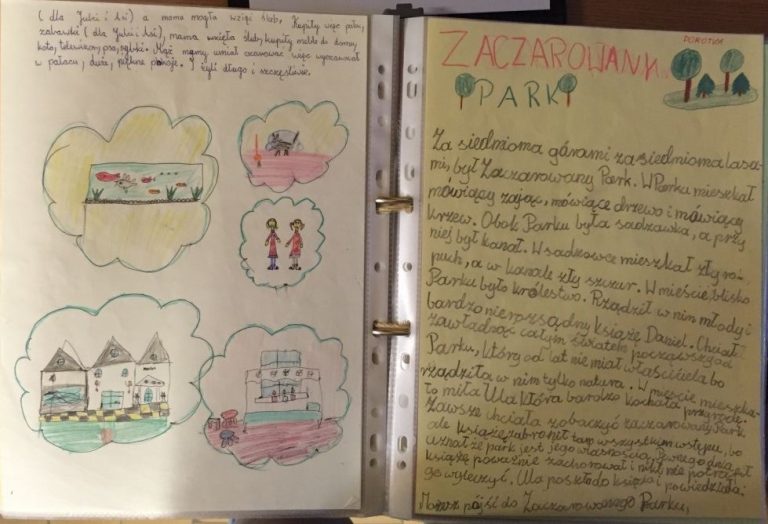 ( dla Julci i Asi ) a mama mogła wziąć ślub. Kupiły więc psa,
zabawki ( dla Julci i Asi ), mama wzięła ślub, kupiły meble do domu,
kota, telewizor, psa, rybki. Mąż mamy umiał czarować więc wyczarował
w pałacu, duże, piękne pokoje. I żyli długo i szczęśliwie.
ZACZAROWANY
DOROTKA
PARK
Za siedmioma górami za siedmioma lasa-
mi, był Zaczarowany Park. W Parku mieszkał
mówiący zając, mówiące drzewo i mówiący
krzew. Obok Parku była sadzawka, a przy
niej był kanał. W sadzawce mieszkał zły ro-
puch, a w kanale zły szczur. W mieście, blisko
Parku było królestwo. Rządził w nim młody i
bardzo nierozsądny książę Daniel. Chciał
zawładnąć całym światem począwszy od
Parku, który od lat nie miał właściciela bo
rządziła w nim tylko natura. W mieście mieszka-
ła miła Ula która bardzo kochała przyrodę.
Zawsze chciała zobaczyć zaczarowany Park
ale książę zabronił tam wszystkim wstępu, bo
uznał że park jest jego własnością. Pewnego dnia
książę poważnie zachorował i nikt nie potrafił
go wyleczyć. Ula poszła do księcia i powiedziała:
Możesz pójść do Zaczarowanego Parku,